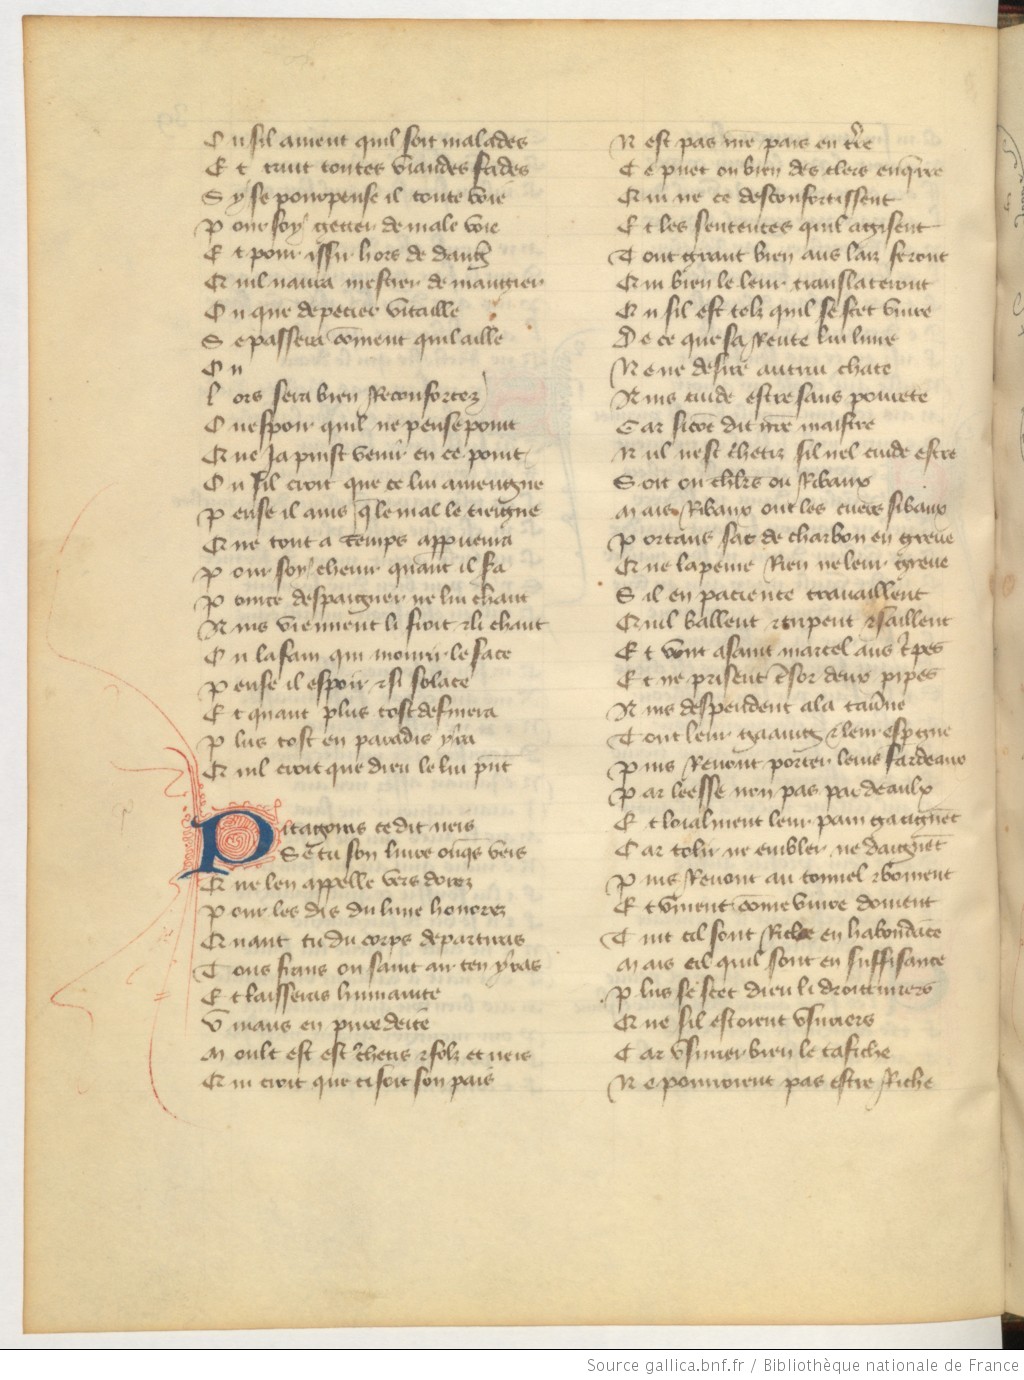 O u sil auient quil soit malades
E t truit toutes viandes fades
S y se pourpense il toute voie
P our soy getter de male voie
E t pour issir hors de dangr
Q uil naura mestier de mangier
O u que de petite vitaille
S e passera coment quil aille
O u
l ors sera bien Reconfortez
O u espoir quil ne pense point
Q ue Ja puist venir en ce point
O u sil croit que ce lui auieigne
P ense il ains q le mal le tieigne
Q ue tout a temps appuera
P our soy cheuir quant il sa
P ource despargner ne lui chaut
A ins viennent li froit et li chaut
O u la fain qui mourir le face
P ense il espoir et si solace
E t quant plus tost definera
P lus tost en paradis yra
Q uil croit que dieu le lui pnt
P itagoras ce dit neis
Se tu son liure onqs veis
Q ue len appelle vers dorez
P our les dis du liure honorez
Q uant tu du corps departiras
T ous frans ou saint air ten yras
E t laisseras humanite
V iuans en pure deite
M oult est est chetis et folz et neis
Q ui croit que ci soit son pais
N est pas nre pais en tre
C e puet on bien des clers enqrre
Q ui ne ce desconfortissent
E t les sentences quil agisent
T out grant bien aus laiz feront
Q ui bien le leur translateront
O u sil est telz quil se scet viure
D e ce que sa Rente lui liure
N e ne desire autrui chate
A ins cuide estre sans pourete
C ar sicot dit nre maistre
N ul nest chetiz sil nel cuide estre
S oit ou chlrs ou Ribaux
M ais Ribaux ont les cuers si baux
P ortans sac de charbon en greue
Q ue la peine Rien ne leur greue
S il en pacience trauaillent
Q uil ballent et tripent et saillent
E t vont a saint marcel aus tripes
E t ne prisent tresor deux pipes
A ins despendent a la tauerne
T out leur gaaing et leur espgne
P uis Reuont porter leurs fardeaux
P ar leesse non pas par deaulx
E t loialment leur pain gaaignet
C ar tolir ne embler ne daignet
P uis Reuont au tonnel et boiuent
E t viuent come viure doiuent
T uit cil sont Riche en habondace
M ais cil quil sont en suffisance
P lus se scet dieu li droitturiers
Q ue sil estoient vsuriers
C ar vsurier bien le tafiche
N e pourroient pas estre Riche
Source gallica.bnf.fr / Bibliothèque nationale de France